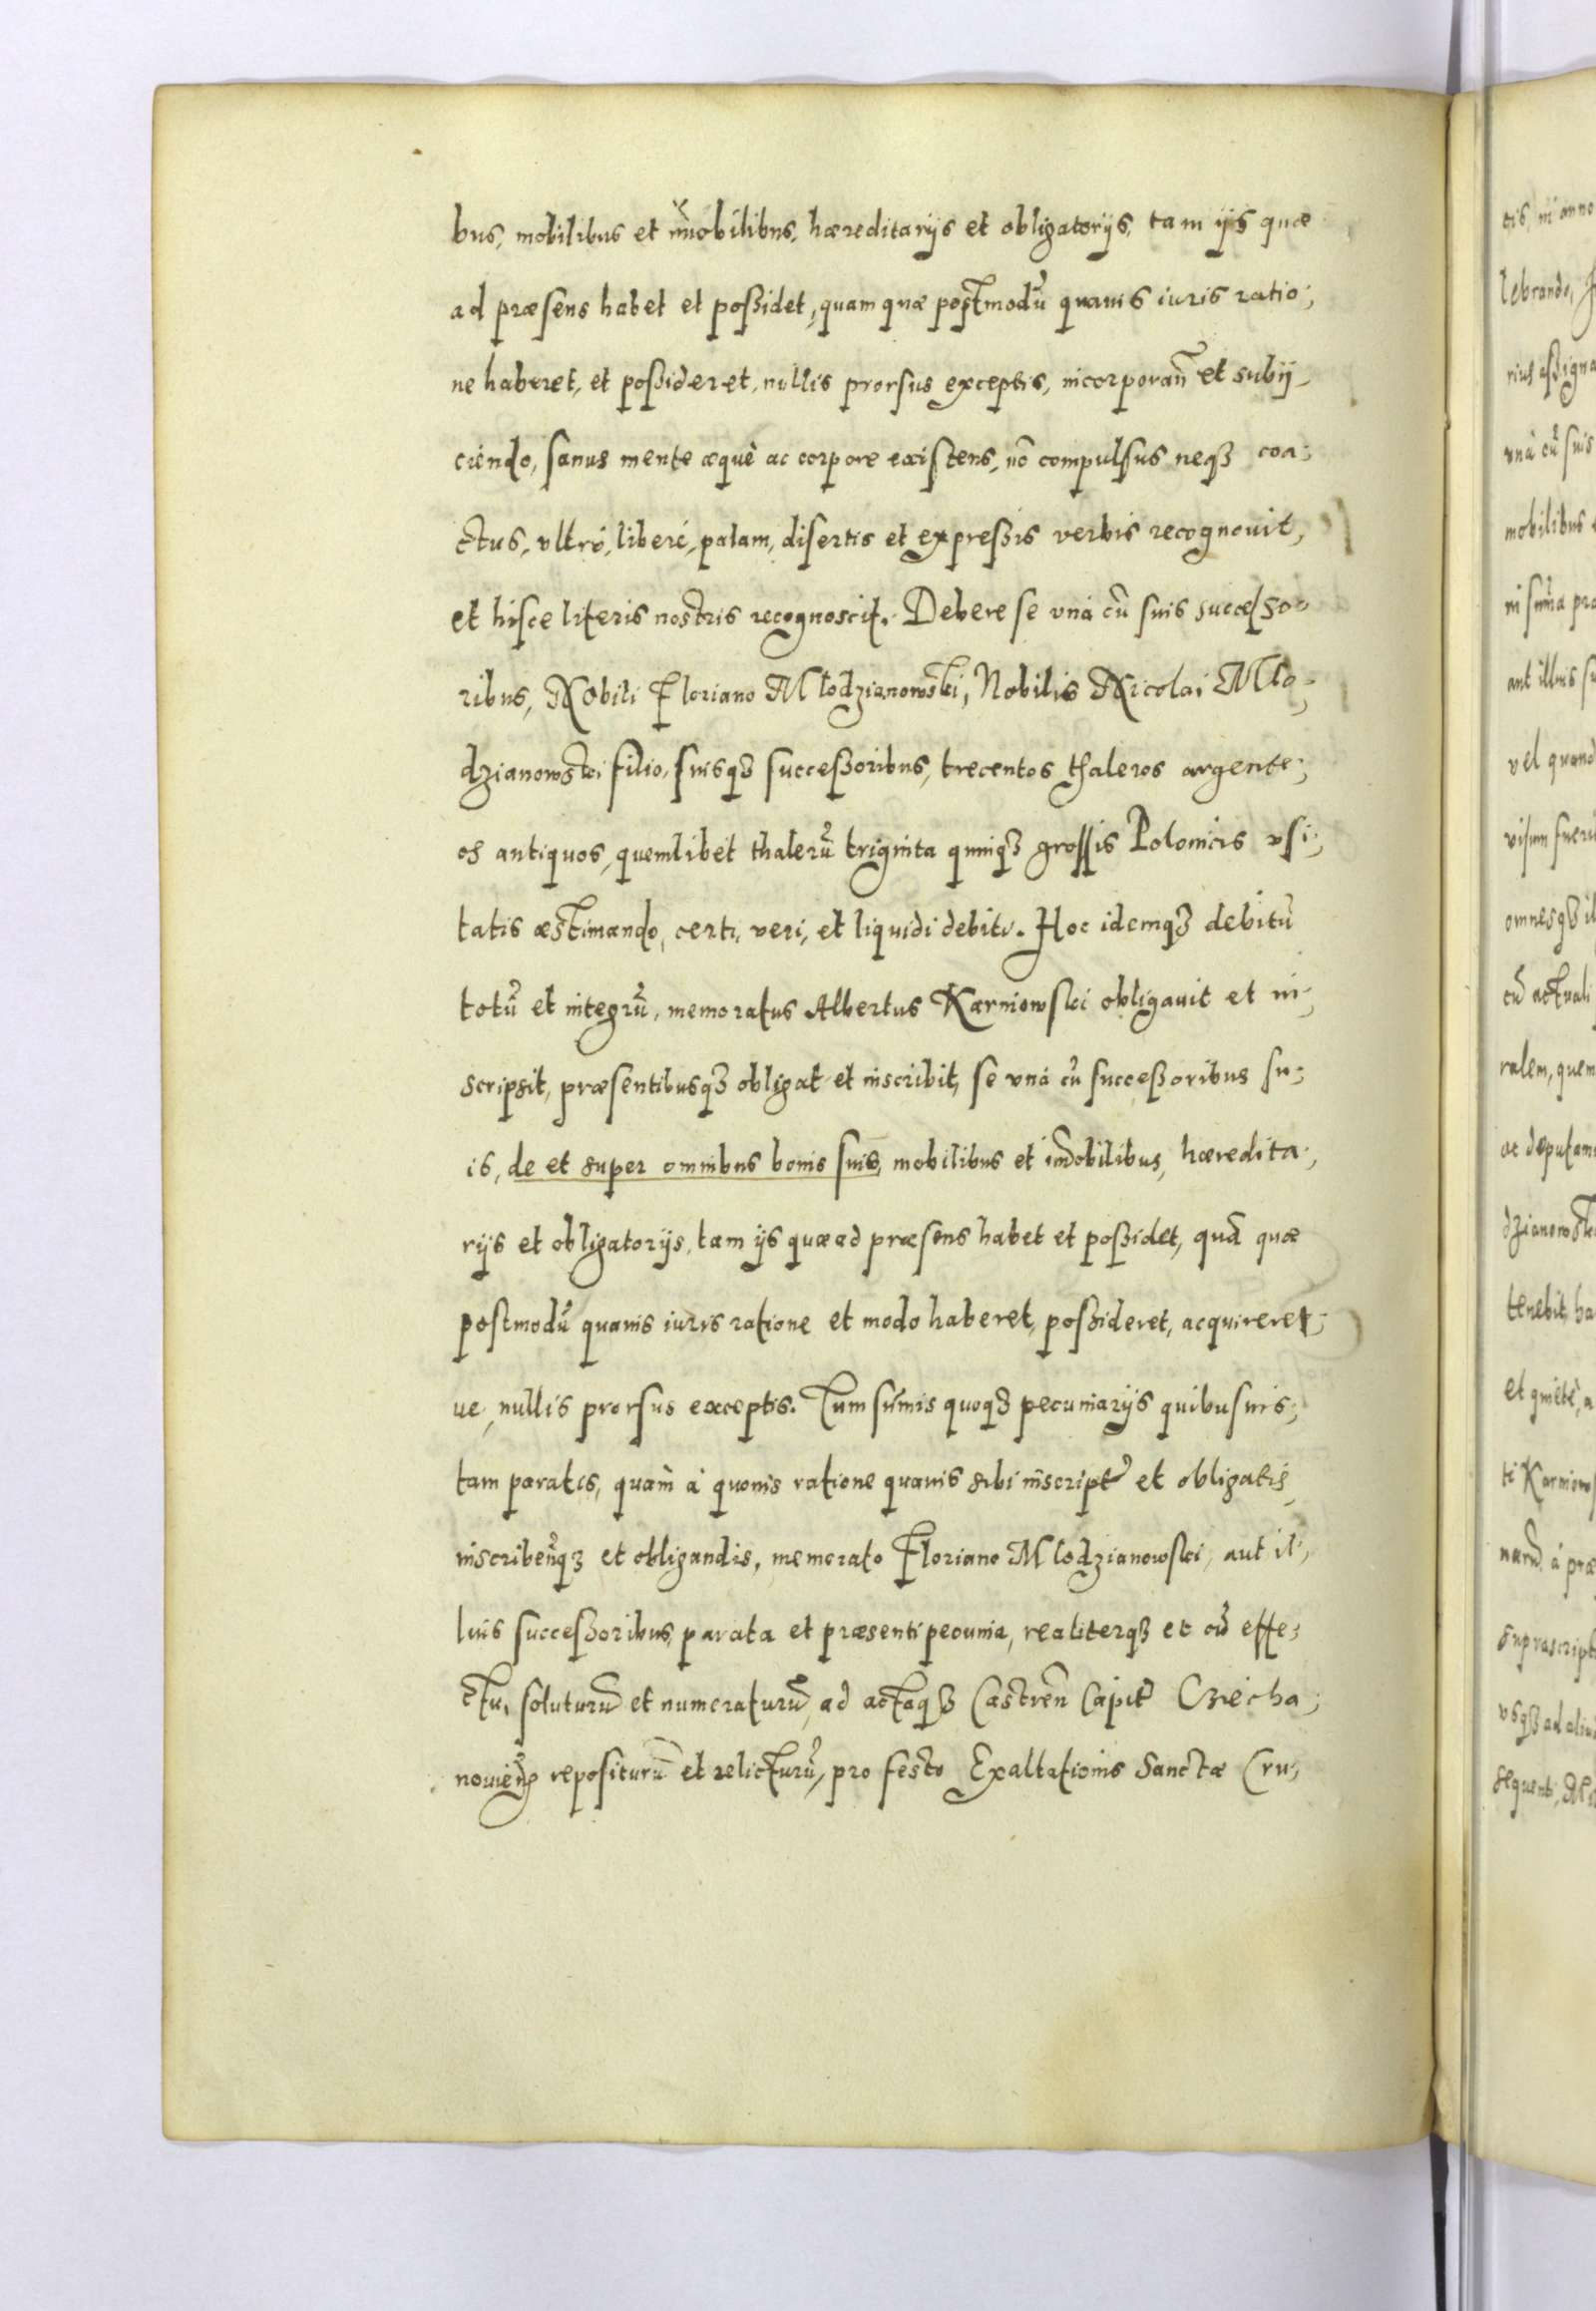 bus, mobilibus et im̃obilibus, hæreditarijs et obligatorijs, tam ijs quæ
ad præsens habet et poßidet, quam quæ postmodũ quauis iuris ratio-
ne haberet, et poßideret, nullis prorsus exceptis, incorporañ et subij-
ciendo, sanus mente æquè ac corpore existens, nõ compulsus neqȝ coa-
ctus, vltró, liberé, palam, disertis et expreßis verbis recognouit,
et hisce literis nostris recognoscit. Debere se vná cũ suis succeſso-
ribus, Nobili Floriano Mlodzianowski, Nobilis Nicolai Mlo-
dzianowski filio, suisqȝ succeßoribus, trecentos thaleros argente-
os antiquos, quemlibet thalerũ triginta quinqȝ grossis Polonicis vsi-
tatis æstimando, certi, veri, et liquidi debiti. Hoc idemqȝ debitũ
totũ et integrũ, memoratus Albertus Karniowski obligauit et in-
scripsit, præsentibusqȝ obligat et inscribit, se vná cũ succeßoribus su-
is, de et super omnibus bonis suis, mobilibus et im̃obilibus, hæredita-
rijs et obligatorijs, tam ijs quæ ad præsens habet et poßidet, quã quæ
postmodũ quauis iuris ratione et modo haberet, poßideret, acquireret-
ue, nullis prorsus exceptis. Tum sum̃is quoqȝ pecuniarijs quibusuis,
tam paratis, quàm á quouis ratione quauis sibi inscript̃ et obligatis,
inscribeñqȝ et obligandis, memorato Floriano Mlodzianowski, aut il-
lius succeßoribus, parata et præsenti pecunia, realiterqȝ et cũ effe-
ctu, soluturũ et numeraturũ, ad actaqȝ Castreñ Capit̃ Cziecha-
nouieñ repositurũ et relicturũ, pro festo Exaltationis Sanctæ Cru-